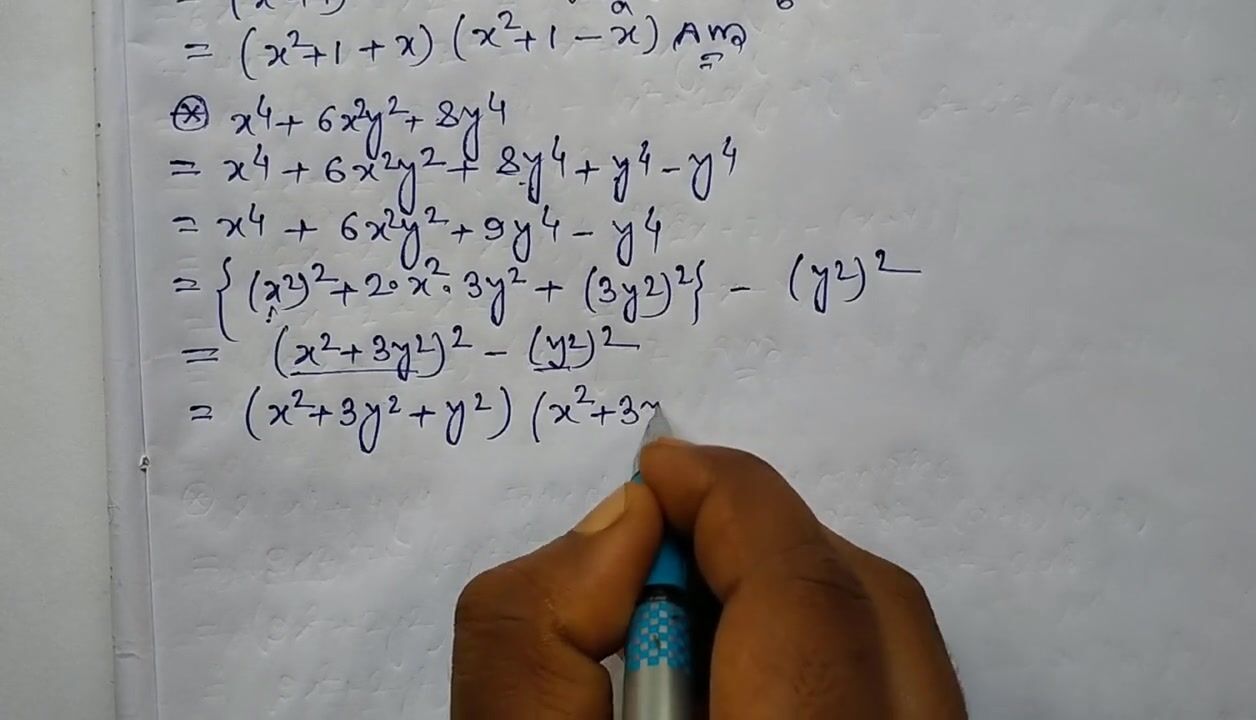 = (x²+1 + x) (x²+1 – x) Ans
⊛ x⁴ + 6x²y² + 8y⁴
= x⁴ + 6x²y² + 8y⁴ + y⁴ – y⁴
= x⁴ + 6x²y² + 9y⁴ – y⁴
= {(x²)² + 2·x²·3y² + (3y²)²} – (y²)²
= (x² + 3y²)² – (y²)²
= (x² + 3y² + y²) (x² + 3y